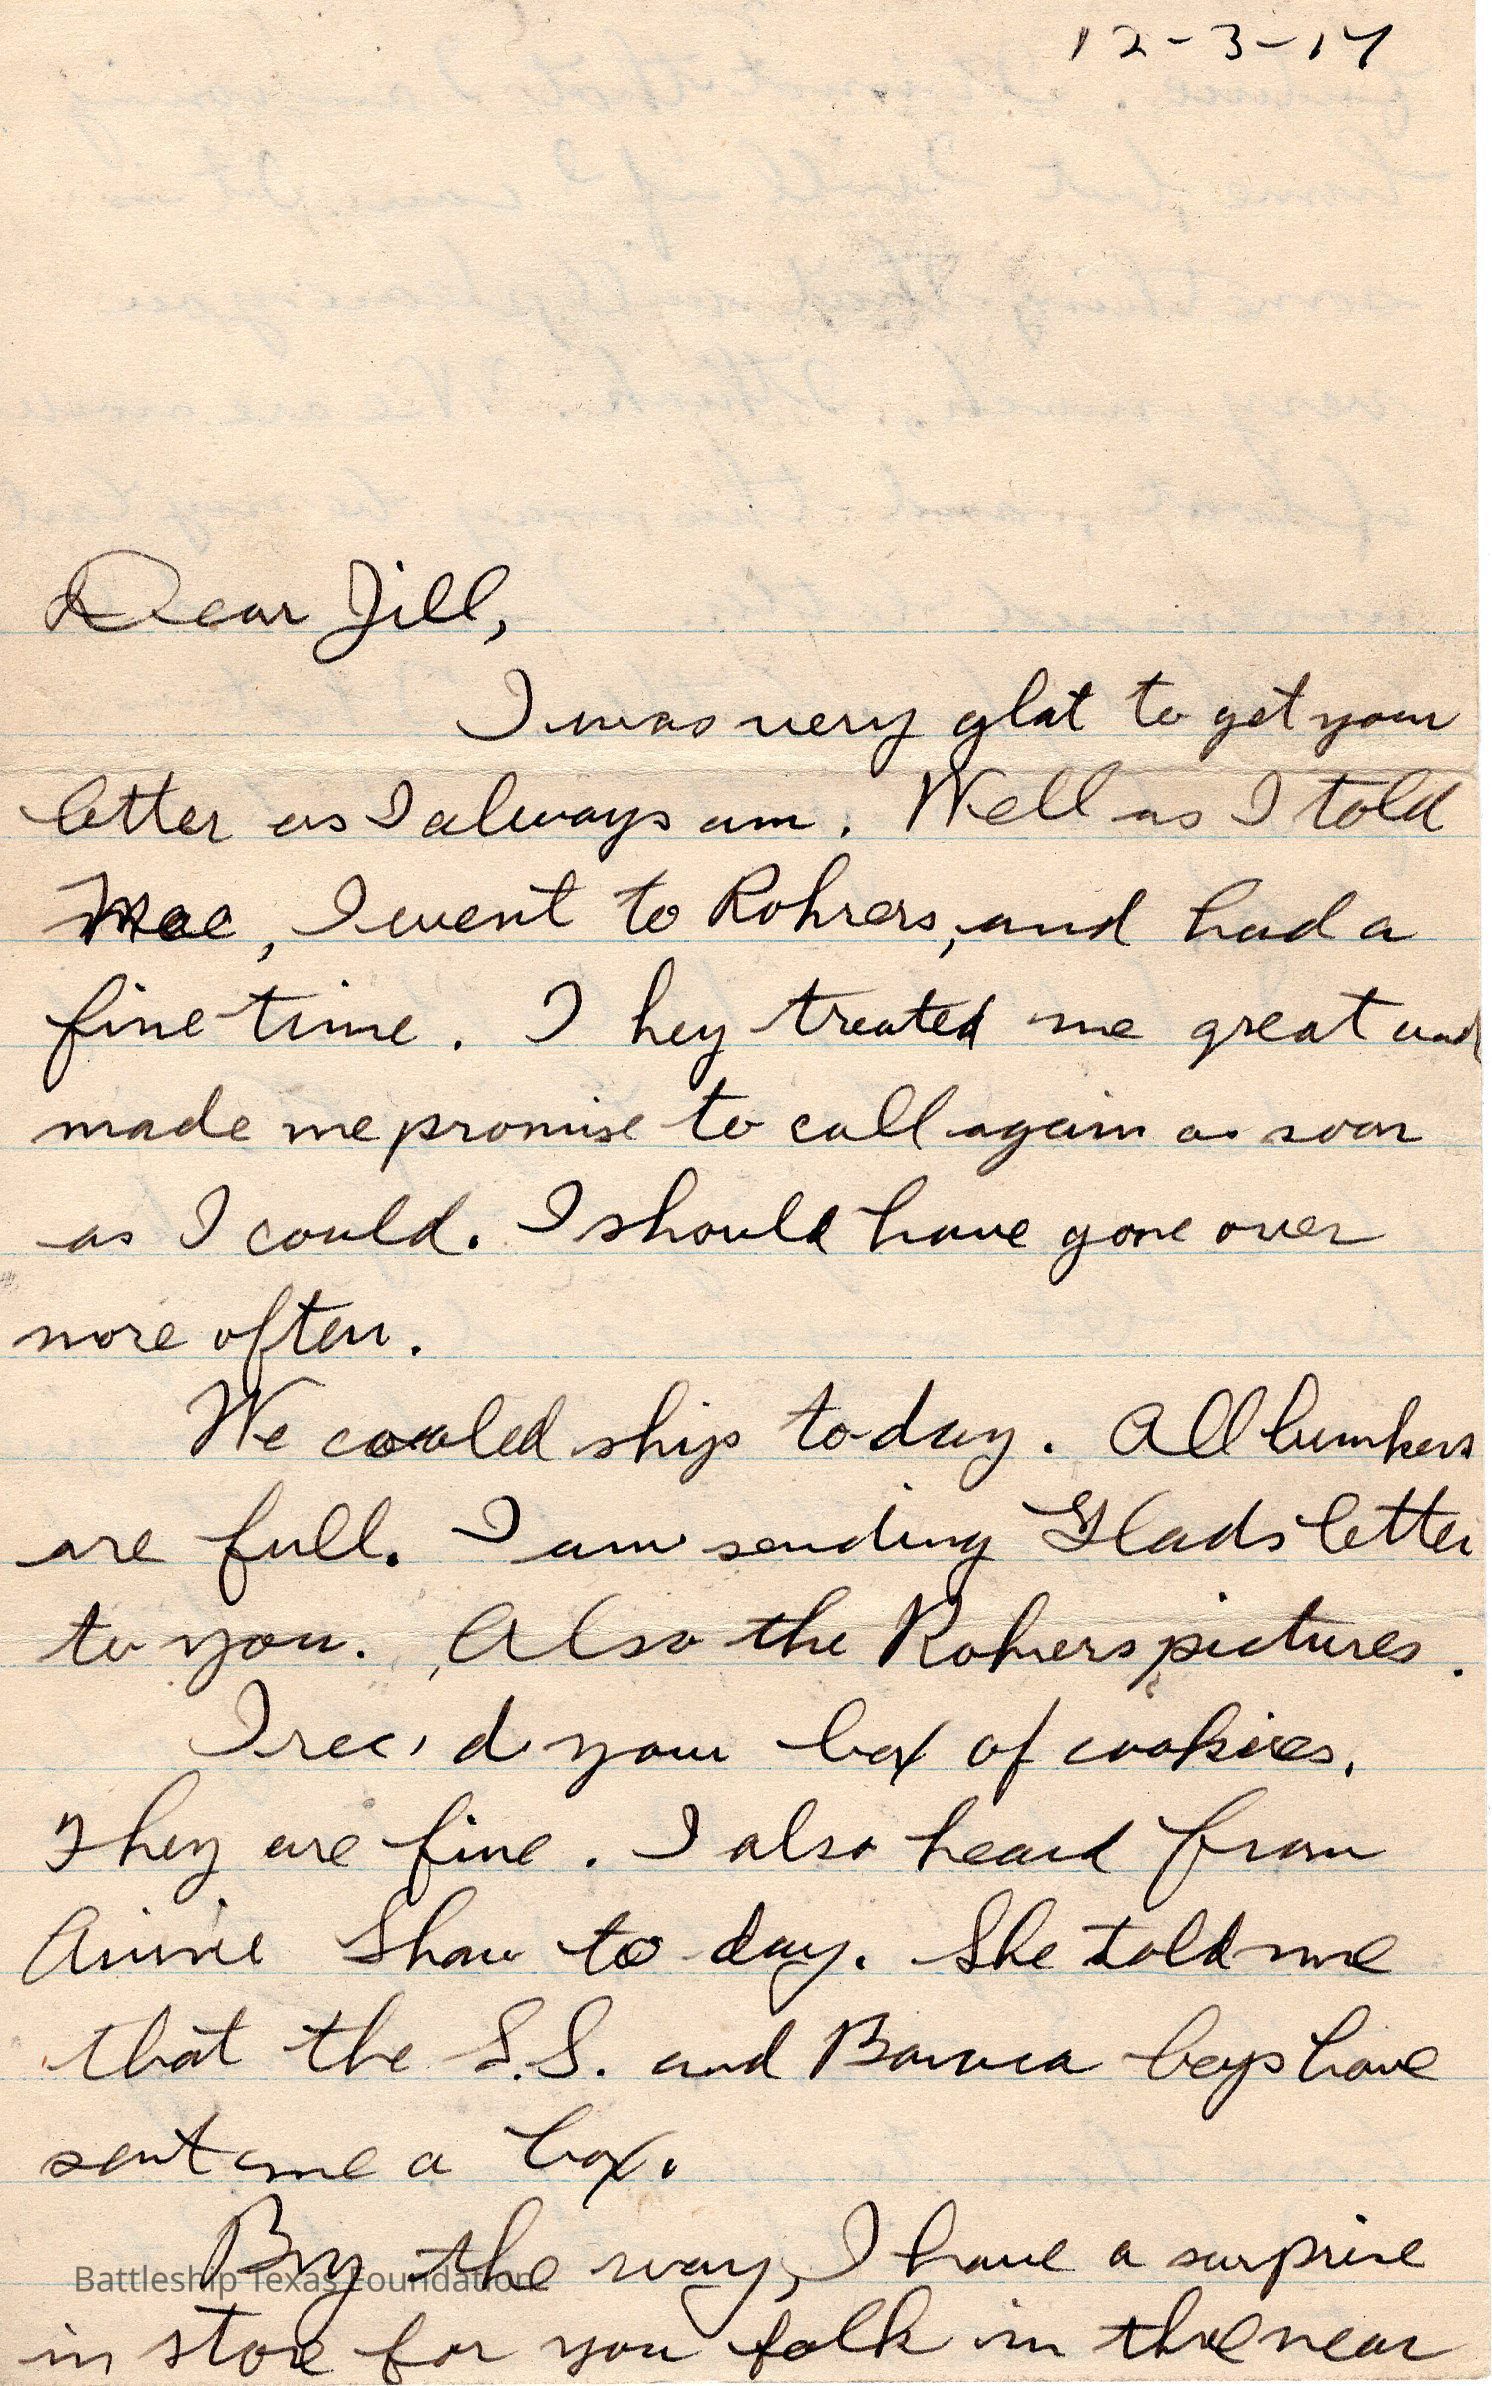 12-3-17
Dear Jill,
I was very glat to get your
letter as I always am. Well as I told
Mae, I went to Rohrers, and had a
fine time. They treated me great and
made me promise to call again as soon
as I could. I should have gone over
more often.
We coaled ship to-day. All bunkers
are full. I am sending Glads letter
to you. Also the Rohrers pictures.
I rec'd your box of cookies.
They are fine. I also heard from
Annie Shaw to day. She told me
that the S.S. and Baraca boys have
sent me a box.
By the way, I have a surprise
Battleship Texas Foundation
in store for you folk in the near